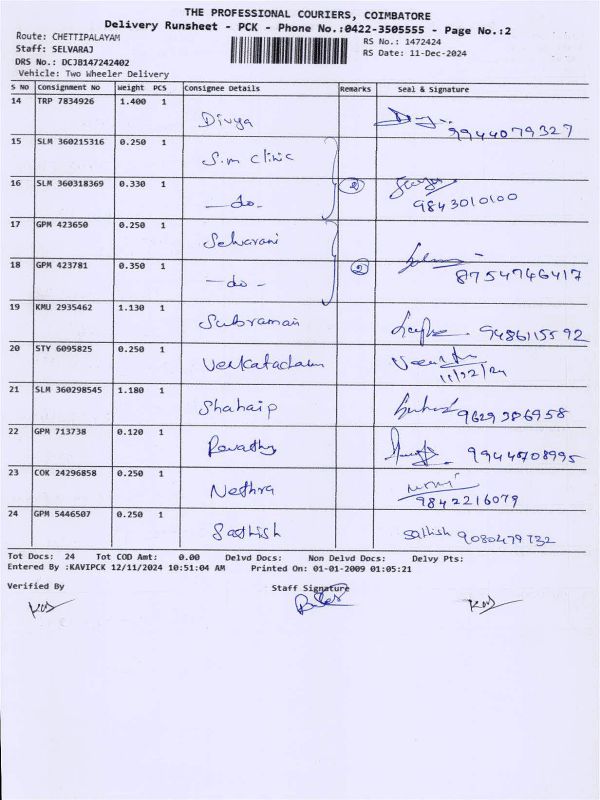 THE PROFESSIONAL COURIERS, COIMBATORE
Delivery Runsheet - PCK - Phone No.:0422-3505555 - Page No.:2
Route: CHETTIPALAYAM
RS No.: 1472424
Staff: SELVARAJ
RS Date: 11-Dec-2024
DRS No.: DCJB147242402
Vehicle: Two Wheeler Delivery
S No Consignment No Weight PCS Consignee Details Remarks Seal & Signature
14 TRP 7834926 1.400 1 Divya 9944079327
15 SLM 360215316 0.250 1 S.m clinic
16 SLM 360318369 0.330 1 -do- 2 9843010100
17 GPM 423650 0.250 1 Selvarani
18 GPM 423781 0.350 1 -do- 2 8754746417
19 KMU 2935462 1.130 1 Subraman 9486115592
20 STY 6095825 0.250 1 Venkatachalam 11/12/24
21 SLM 360298545 1.180 1 Shahaip 9629286958
22 GPM 713738 0.120 1 Revathy 9944708995
23 COK 24296858 0.250 1 Nethra 9842216079
24 GPM 5446507 0.250 1 Sasthish sathish 9080479732
Tot Docs: 24 Tot COD Amt: 0.00 Delvd Docs: Non Delvd Docs: Delvy Pts:
Entered By :KAVIPCK 12/11/2024 10:51:04 AM Printed On: 01-01-2009 01:05:21
Verified By Staff Signature